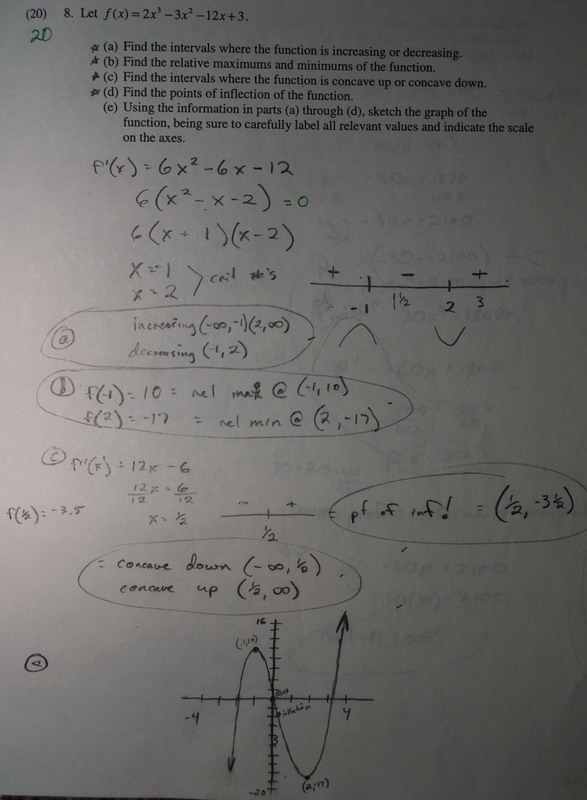 (20) 8. Let f(x) = 2x³ – 3x² – 12x + 3.
20
☆ (a) Find the intervals where the function is increasing or decreasing.
☆ (b) Find the relative maximums and minimums of the function.
☆ (c) Find the intervals where the function is concave up or concave down.
☆ (d) Find the points of inflection of the function.
(e) Using the information in parts (a) through (d), sketch the graph of the
function, being sure to carefully label all relevant values and indicate the scale
on the axes.
f'(x) = 6x² – 6x – 12
6(x² – x – 2) = 0
6(x + 1)(x – 2)
x = -1
x = 2
crit #'s
+ – +
-1 1½ 2 3
(a) increasing (-∞, -1)(2, ∞)
decreasing (-1, 2)
(b) f(-1) = 10 = rel max @ (-1, 10)
f(2) = -17 = rel min @ (2, -17)
(c) f''(x) = 12x – 6
12x = 6
12 12
x = ½
f(½) = -3.5
– +
½
= pt of inf! = (½, -3½)
= concave down (-∞, ½)
concave up (½, ∞)
(e)
16
(-1,10)
inflection
-4 4
-20
(2,-17)